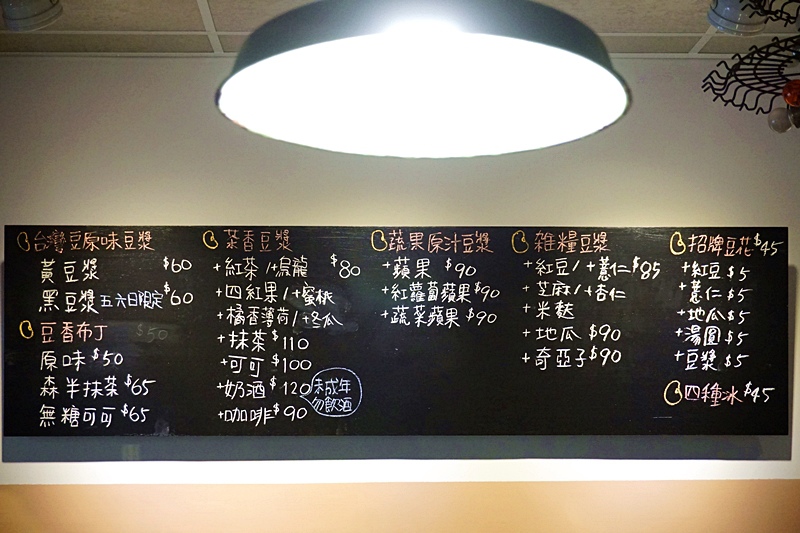 台灣豆原味豆漿
黃豆漿 $60
黑豆漿 五六日限定 $60
豆香布丁 $50
原味 $50
森半抹茶 $65
無糖可可 $65
茶香豆漿
+紅茶/+烏龍 $80
+四紅果/+蜜桃
+橘香薄荷/+冬瓜
+抹茶 $110
+可可 $100
+奶酒 $120 未成年勿飲酒
+咖啡 $90
蔬果原汁豆漿
+蘋果 $90
+紅蘿蔔蘋果 $90
+蔬菜蘋果 $90
雜糧豆漿
+紅豆/+薏仁 $85
+芝麻/+杏仁
+米麩
+地瓜 $90
+奇亞子 $90
招牌豆花 $45
+紅豆 $5
+薏仁 $5
+地瓜 $5
+湯圓 $5
+豆漿 $5
四種冰 $45